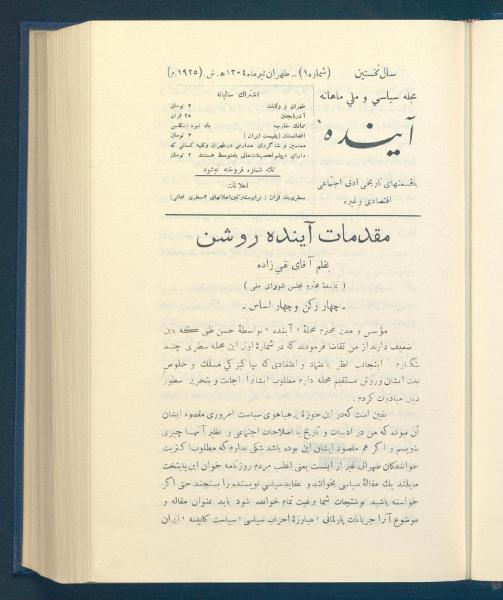 سال نخستین (شماره ۱) ـ طهران تیرماه ۱۳۰۴ ه‍. ش. (۱۹۲۵ م.)
مجله سیاسی و ملی ماهانه
آینده
باقسمتهای تاریخی ادبی اجتماعی
اقتصادی وغیره
اشتراك سالیانه
طهران و ولایات ۳ تومان
آذربایجان ۳۵ قران
ممالك خارجه یك لیره انگلیسی
افغانستان (بقیمت ایران) ۳ تومان
معلمین و شاگردان مدارس درطهران وکلیه کسانی که
دارای دیپلم تحصیلات عالی یامتوسط هستند ۲ تومان
تك شماره فروخته نمیشود
اعلانات
سطری یك قران (برای مشترکین اعلانهای ۳ سطری مجانی)
مقدمات آینده روشن
بقلم آقای تقی زاده
( نماینده محترم مجلس شورای ملی )
ـ چهار رکن و چهار اساس ـ
مؤسس و مدیر محترم مجلهٔ « آینده » بواسطهٔ حسن ظنی که باین
ضعیف دارند از من تقاضا فرمودند که در شمارهٔ اول این مجله سطری چند
بنگارم. اینجانب نظر باعتماد و اعتقادی که بپاکیزکی مسلك و خلوص
نیت ایشان وروش مستقیم مجله دارم مطلوب ایشانرا اجابت و بتحریر سطور
ذیل مبادرت کردم.
یقین است که در این حوزهٔ پرهیاهوی سیاست امروزی مقصود ایشان
آن نبوده که من در ادبیات و تاریخ یا اصلاحات اجتماعی و نظیر آنها چیزی
بنویسم و اگر هم مقصود ایشان این بوده باشد شکی ندارم که مطلوب اکثریت
خوانندگان طهرانی غیر از اینست یعنی اغلب مردم روزنامه خوان این پایتخت
مایلند یك مقالهٔ سیاسی بخوانند و عقاید سیاسی نویسنده را بسنجند حتی اگر
خواسته باشید نوشتجات شما برغبت تمام خوانده شود باید عنوان مقاله و
موضوع آنرا جریانات پارلمانی، مبارزهٔ احزاب سیاسی، سیاست کابینه، ایران